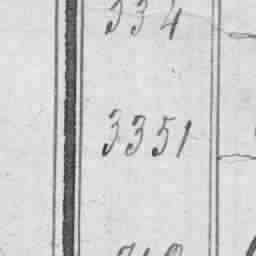 334
3351